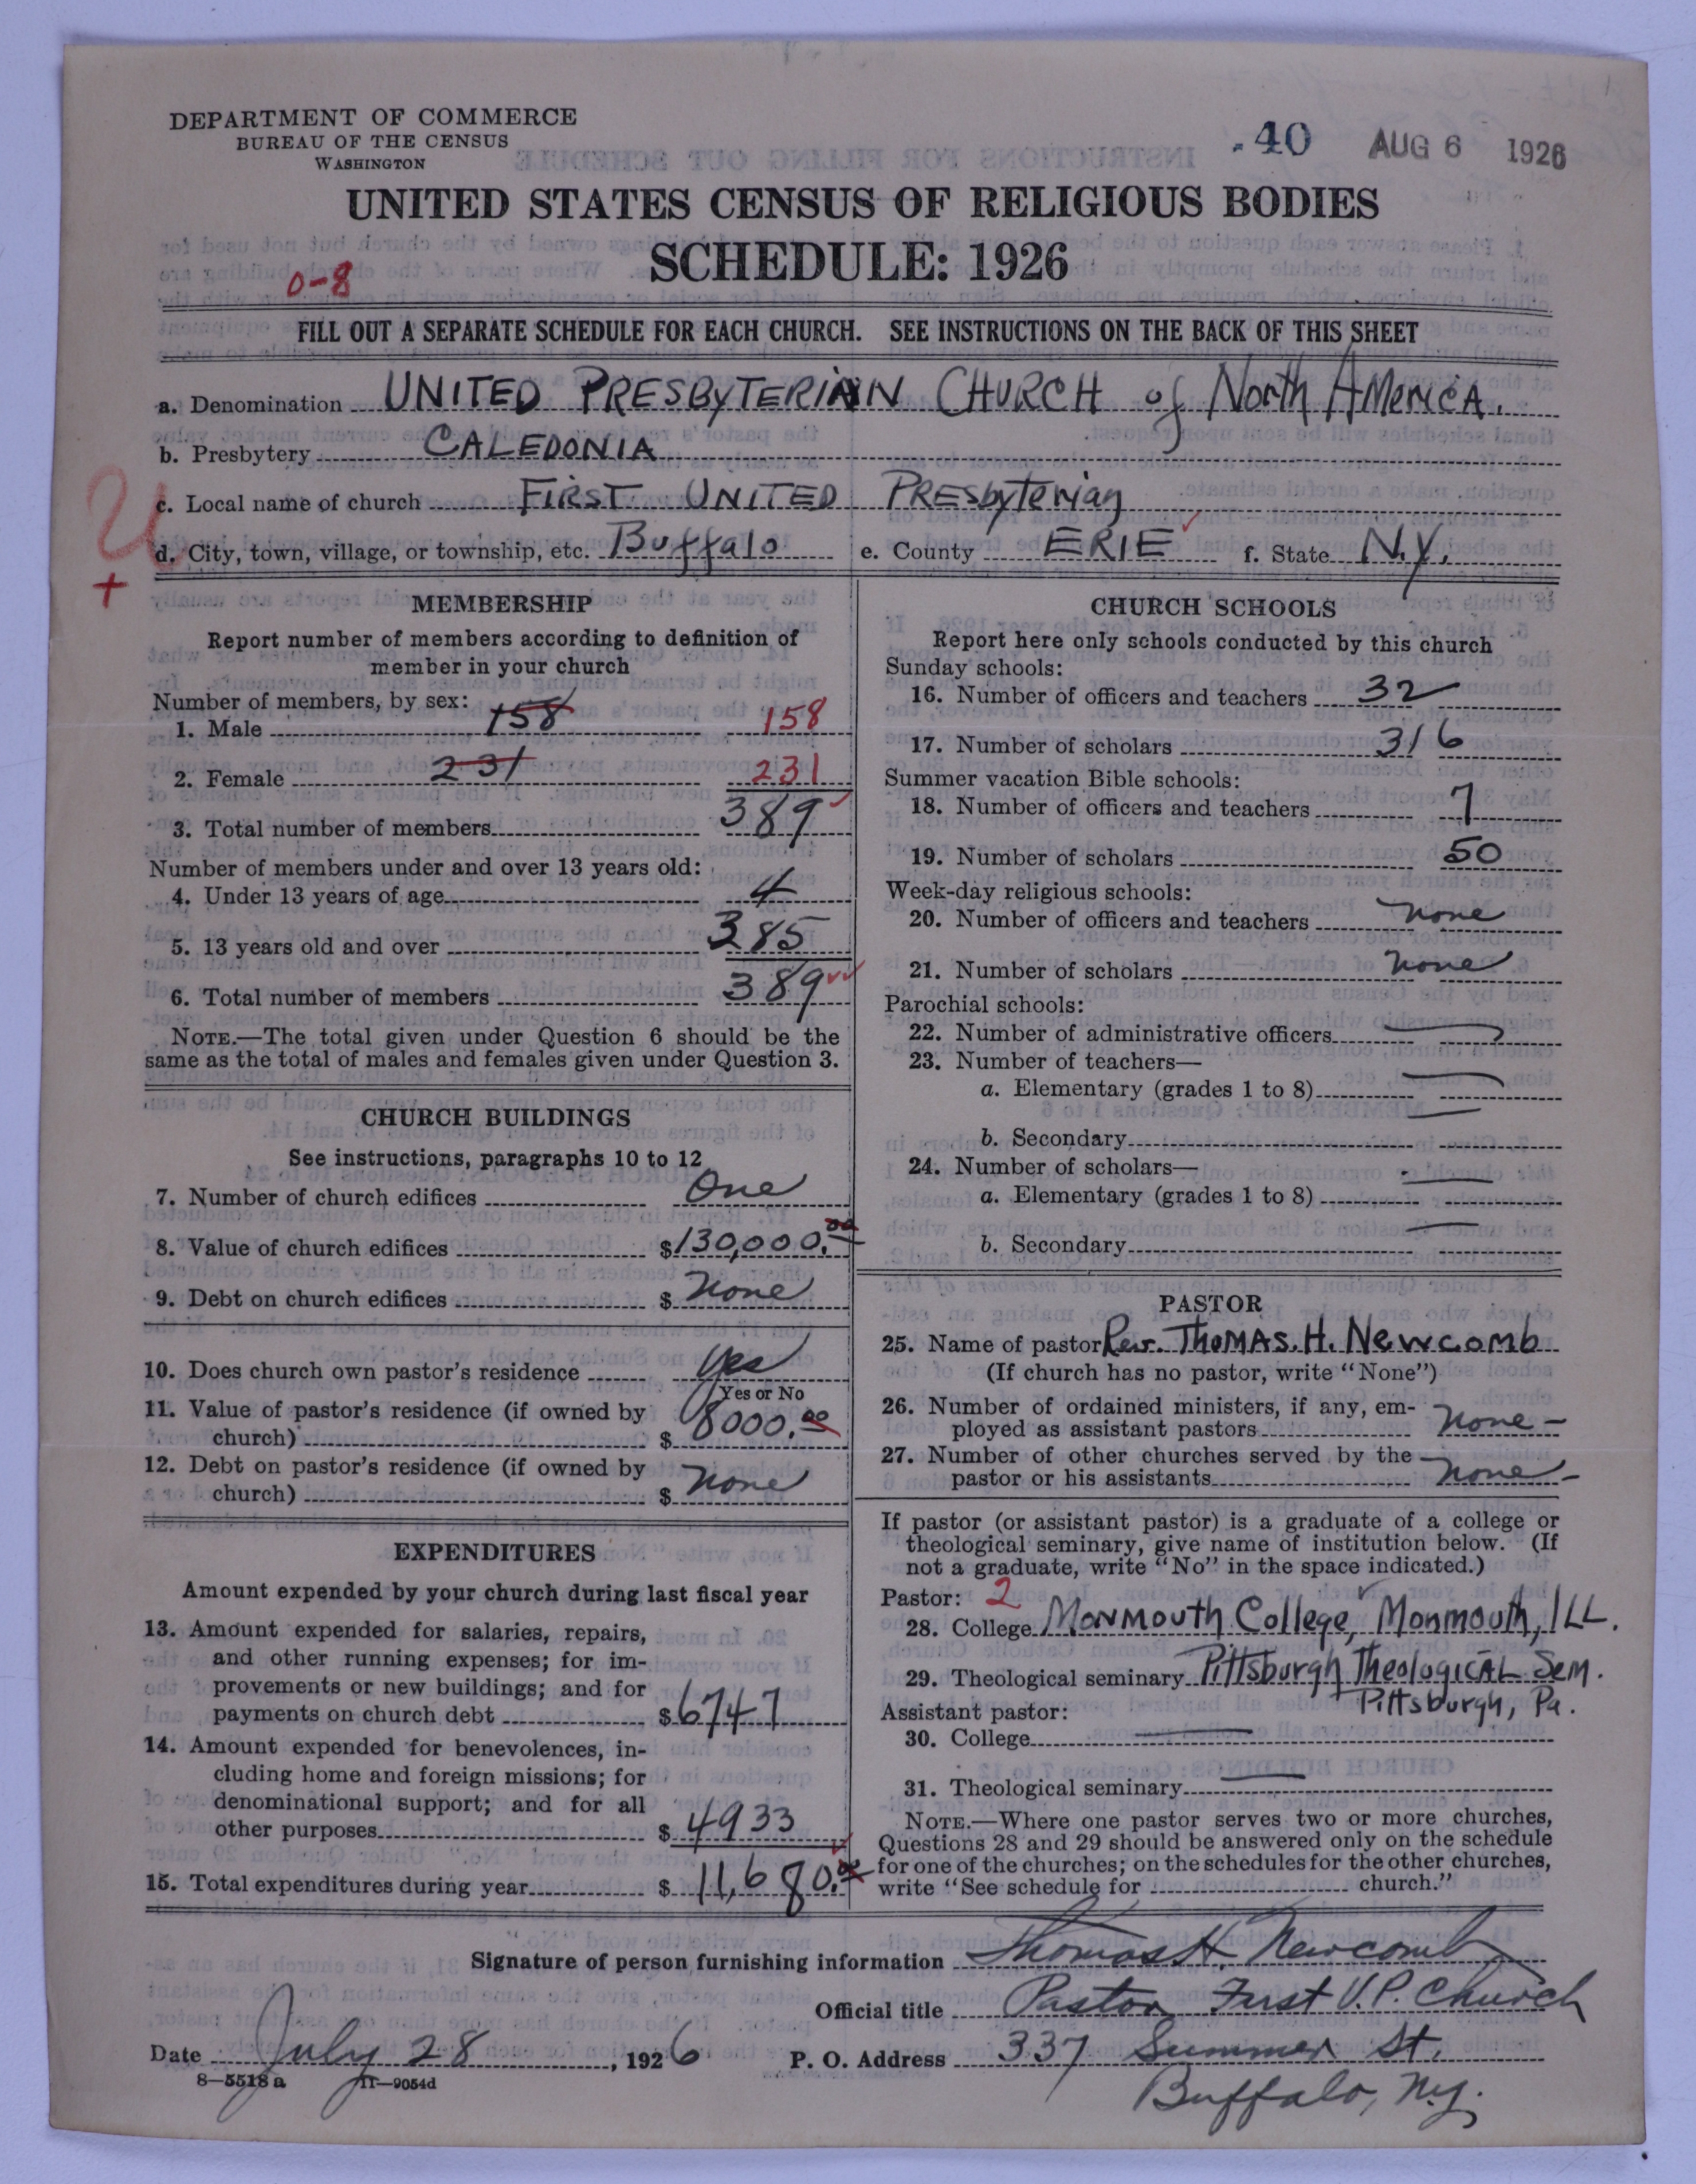 DEPARTMENT OF COMMERCE
BUREAU OF THE CENSUS
WASHINGTON
.40 AUG 6 1926
UNITED STATES CENSUS OF RELIGIOUS BODIES
SCHEDULE: 1926
0-8
FILL OUT A SEPARATE SCHEDULE FOR EACH CHURCH. SEE INSTRUCTIONS ON THE BACK OF THIS SHEET
a. Denomination UNITED PRESBYTERIAN CHURCH of North AMERICA.
b. Presbytery CALEDONIA
c. Local name of church FIRST UNITED PRESbyterian
d. City, town, village, or township, etc. Buffalo e. County ERIE f. State N.Y.
MEMBERSHIP
Report number of members according to definition of
member in your church
Number of members, by sex:
1. Male 158 158
2. Female 231 231
3. Total number of members 389
Number of members under and over 13 years old:
4. Under 13 years of age 4
5. 13 years old and over 385
6. Total number of members 389
NOTE.—The total given under Question 6 should be the
same as the total of males and females given under Question 3.
CHURCH BUILDINGS
See instructions, paragraphs 10 to 12
7. Number of church edifices One
8. Value of church edifices $130,000.00
9. Debt on church edifices $ None
10. Does church own pastor's residence Yes
Yes or No
11. Value of pastor's residence (if owned by
church) $ 8000.00
12. Debt on pastor's residence (if owned by
church) $ None
EXPENDITURES
Amount expended by your church during last fiscal year
13. Amount expended for salaries, repairs,
and other running expenses; for im-
provements or new buildings; and for
payments on church debt $6747
14. Amount expended for benevolences, in-
cluding home and foreign missions; for
denominational support; and for all
other purposes $ 4933
15. Total expenditures during year $ 11,680.00
CHURCH SCHOOLS
Report here only schools conducted by this church
Sunday schools:
16. Number of officers and teachers 32
17. Number of scholars 316
Summer vacation Bible schools:
18. Number of officers and teachers 7
19. Number of scholars 50
Week-day religious schools:
20. Number of officers and teachers none
21. Number of scholars none
Parochial schools:
22. Number of administrative officers
23. Number of teachers—
a. Elementary (grades 1 to 8)
b. Secondary
24. Number of scholars—
a. Elementary (grades 1 to 8)
b. Secondary
PASTOR
25. Name of pastor Rev. THOMAS. H. Newcomb
(If church has no pastor, write "None")
26. Number of ordained ministers, if any, em-
ployed as assistant pastors none -
27. Number of other churches served by the
pastor or his assistants none -
If pastor (or assistant pastor) is a graduate of a college or
theological seminary, give name of institution below. (If
not a graduate, write "No" in the space indicated.)
Pastor: 2
28. College Monmouth College, Monmouth, ILL.
29. Theological seminary Pittsburgh Theological Sem.
Pittsburgh, Pa.
Assistant pastor:
30. College
31. Theological seminary
NOTE.—Where one pastor serves two or more churches,
Questions 28 and 29 should be answered only on the schedule
for one of the churches; on the schedules for the other churches,
write "See schedule for church."
Signature of person furnishing information Thomas H. Newcomb
Official title Pastor First U.P. Church
Date July 28, 1926 P. O. Address 337 Summer St.
Buffalo, N.Y.
8—5518 a 11—9054d